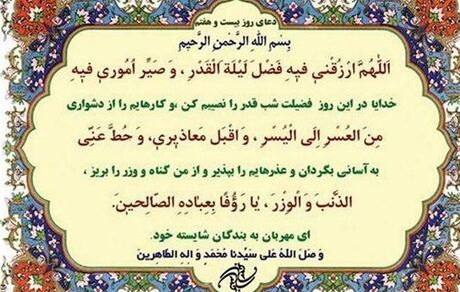 دعای روز بیست و هفتم
بِسْمِ اللهِ الرَّحْمنِ الرَّحیمِ
اَللّهُمَّ ارْزُقْنی فیهِ فَضْلَ لَیْلَةِ الْقَدْرِ ، وَ صَیِّرْ اُمُوری فیهِ
خدایا در این روز فضیلت شب قدر را نصیبم کن ،و کارهایم را از دشواری
مِنَ الْعُسْرِ اِلَی الْیُسْرِ ، وَ اقْبَلْ مَعاذیری، وَ حُطَّ عَنِّی
به آسانی بگردان و عذرهایم را بپذیر و از من گناه و وزر را بریز ،
الذَّنْبَ وَ الْوِزْرَ، یا رَؤُفًا بِعِبادِهِ الصّالِحینَ.
ای مهربان به بندگان شایسته خود.
وَ صَلَّ اللهُ عَلی سَیِّدِنا مُحَمَّدٍ وَ الِهِ الطّاهِرینَ